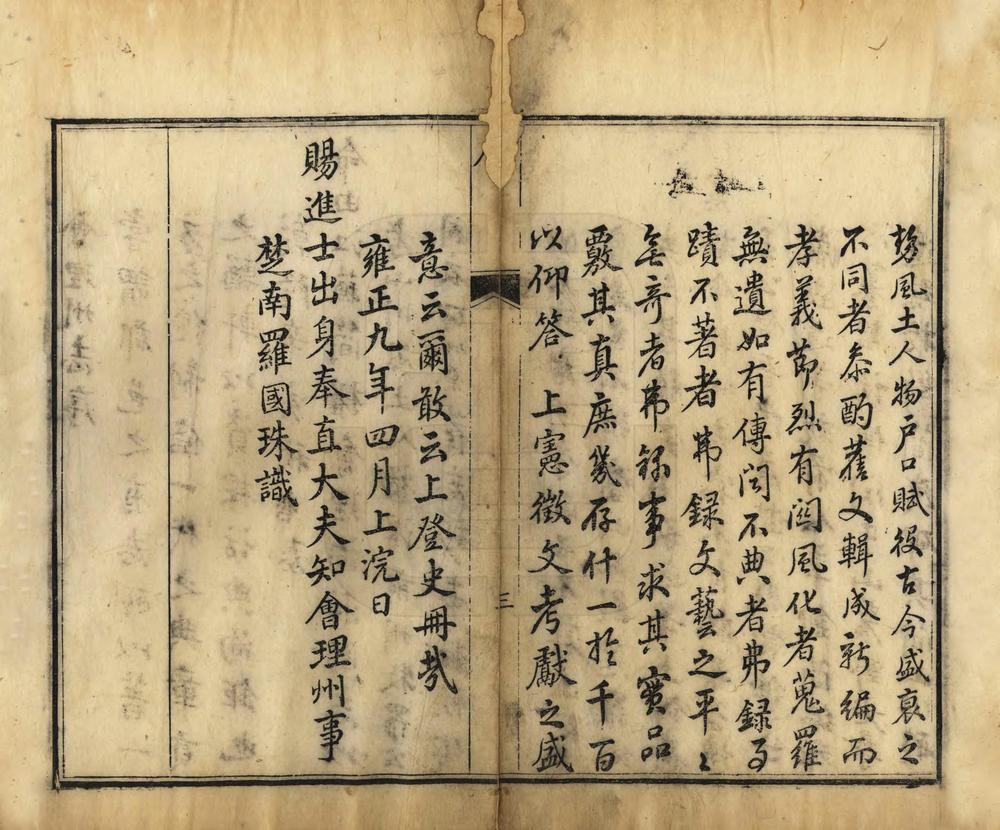 勢風土人物戶口賦役古今盛衰之
不同者叅酌舊文輯成新編而
孝義節烈有関風化者蒐羅
無遺如有傳闻不典者弗録事
蹟不著者弗録文藝之平〻
無竒者弗録事求其實品
覈其真庶幾存什一於千百
以仰答 上憲徵文考獻之盛
三
意云爾敢云上登史冊哉
雍正九年四月上浣日
賜進士出身奉直大夫知會理州事
楚南羅國珠識